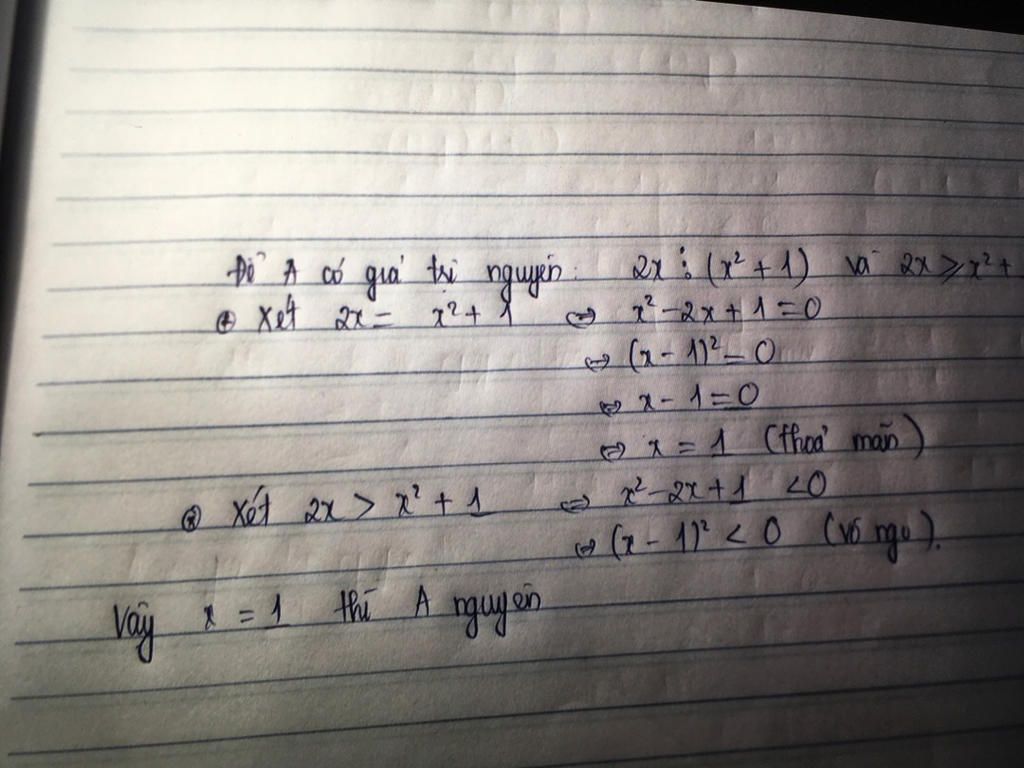 Để A có giá trị nguyên: 2x ⋮ (x² + 1) và 2x ≥ x² +
⊕ Xét 2x = x² + 1 ⇔ x² - 2x + 1 = 0
⇔ (x - 1)² = 0
⇔ x - 1 = 0
⇔ x = 1 (thoả mãn)
⊛ Xét 2x > x² + 1 ⇔ x² - 2x + 1 < 0
⇔ (x - 1)² < 0 (vô ngo).
Vậy x = 1 thì A nguyên